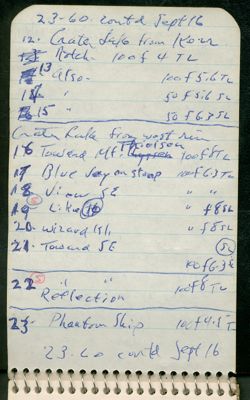 23-60. contd Sept 16
12. Crater Lake from Kerr
Notch. 100 f 4 TL
13 Also. 100 f 5.6 TL
14 " 50 f 5.6 SL
15 " 50 f 6.3 SL
Crater Lake from west rim
16 Toward Mt. Thielson 100 f 8 TL
17 Blue day on steep 100 f 6.3 TL
18 View SE " "
19 Like 18 " f 8 SL
20. Wizard Isl. " f 8 SL
21. Toward SE SL
100 f 6.3
22 " " 100 f 8 TL
Reflection
23- Phantom Ship 100 f 4.5 T
23.60 contd Sept 16